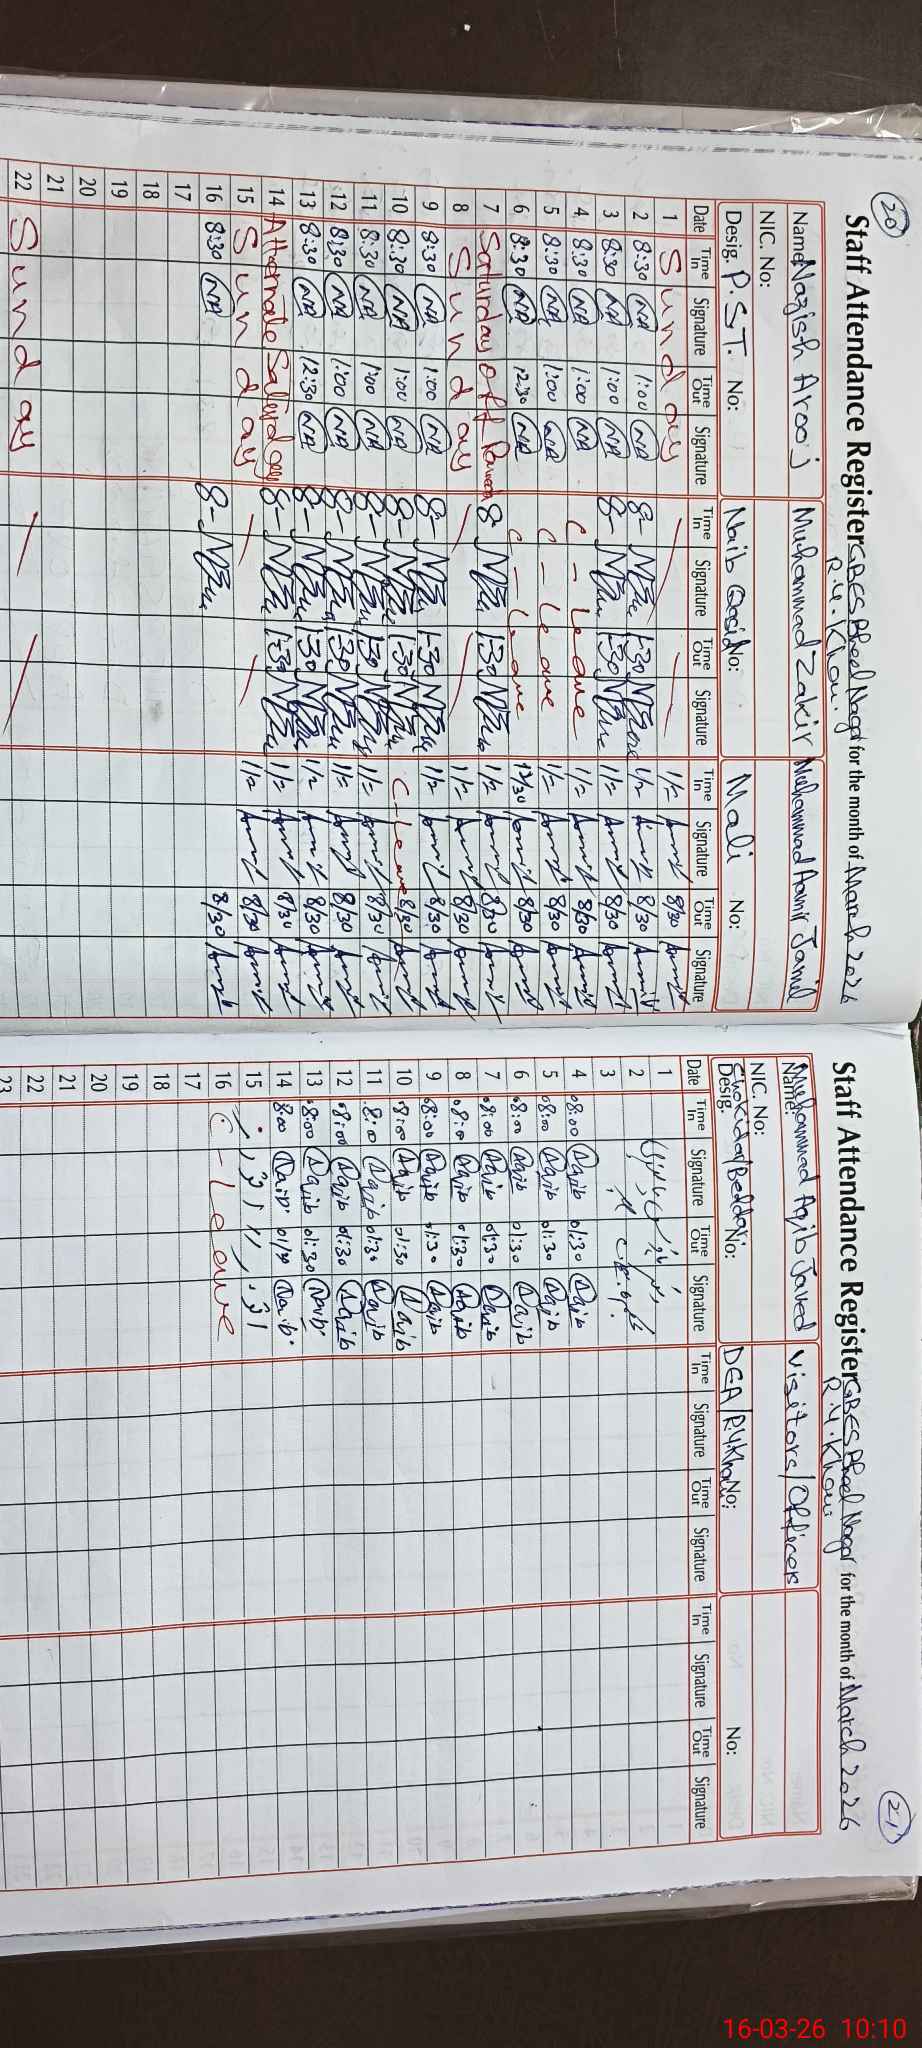 20
Staff Attendance Register GBES Bheel Nagar for the month of March 2026
R.Y.Khan.
Name Nazish Arooj Muhammad Zakir Muhammad Aamir Jamil
NIC. No:
Desig. P.S.T. No: Naib Qasid No: Mali No:
Date Time In Signature Time Out Signature Time In Signature Time Out Signature Time In Signature Time Out Signature
1 Sunday 1/2 8/30
2 8:30 NA 1:00 NA 8- 1-30 1/2 8/30
3 8:30 NA 1:00 NA 8- 1-30 1/2 8/30
4 8:30 NA 1:00 NA C-leave 1/2 8/30
5 8:30 NA 1:00 NA C-leave 1/2 8/30
6 8:30 NA 12:30 NA C-leave 12/30 8/30
7 Saturday off 8- 1-30 1/2 8/30
8 Sunday 1/2 8/30
9 8:30 NA 1:00 NA 8- 1-30 1/2 8/30
10 8:30 NA 1:00 NA 8- 1-30 C-leave 8/30
11 8:30 NA 1:00 NA 8- 1-30 1/2 8/30
12 8:30 NA 1:00 NA 8- 1-30 1/2 8/30
13 8:30 NA 12:30 NA 8- 1-30 1/2 8/30
14 Alternate Saturday 8- 1-30 1/2 8/30
15 Sunday 1/2 8/30
16 8:30 NA 8- 8/30
17
18
19
20
21
22 Sunday
21
Staff Attendance Register GBES Bheel Nagar for the month of March 2026
R.Y.Khan
Name: Muhammad Aqib Javed Visitors/Officers
NIC. No:
Desig. Chokidar/Beldar No: DEA/R.Y.Khan No: No:
Date Time In Signature Time Out Signature Time In Signature Time Out Signature Time In Signature Time Out Signature
1
2
3
4 08:00 Aqib 01:30 Aqib
5 08:00 Aqib 01:30 Aqib
6 08:00 Aqib 01:30 Aqib
7 08:00 Aqib 01:30 Aqib
8 08:00 Aqib 01:30 Aqib
9 08:00 Aqib 01:30 Aqib
10 08:00 Aqib 01:30 Aqib
11 8:00 Aqib 01:30 Aqib
12 08:00 Aqib 01:30 Aqib
13 08:00 Aqib 01:30 Aqib
14 8:00 Aqib Aqib
15
16 C-Leave
17
18
19
20
21
22
23
16-03-26 10:10